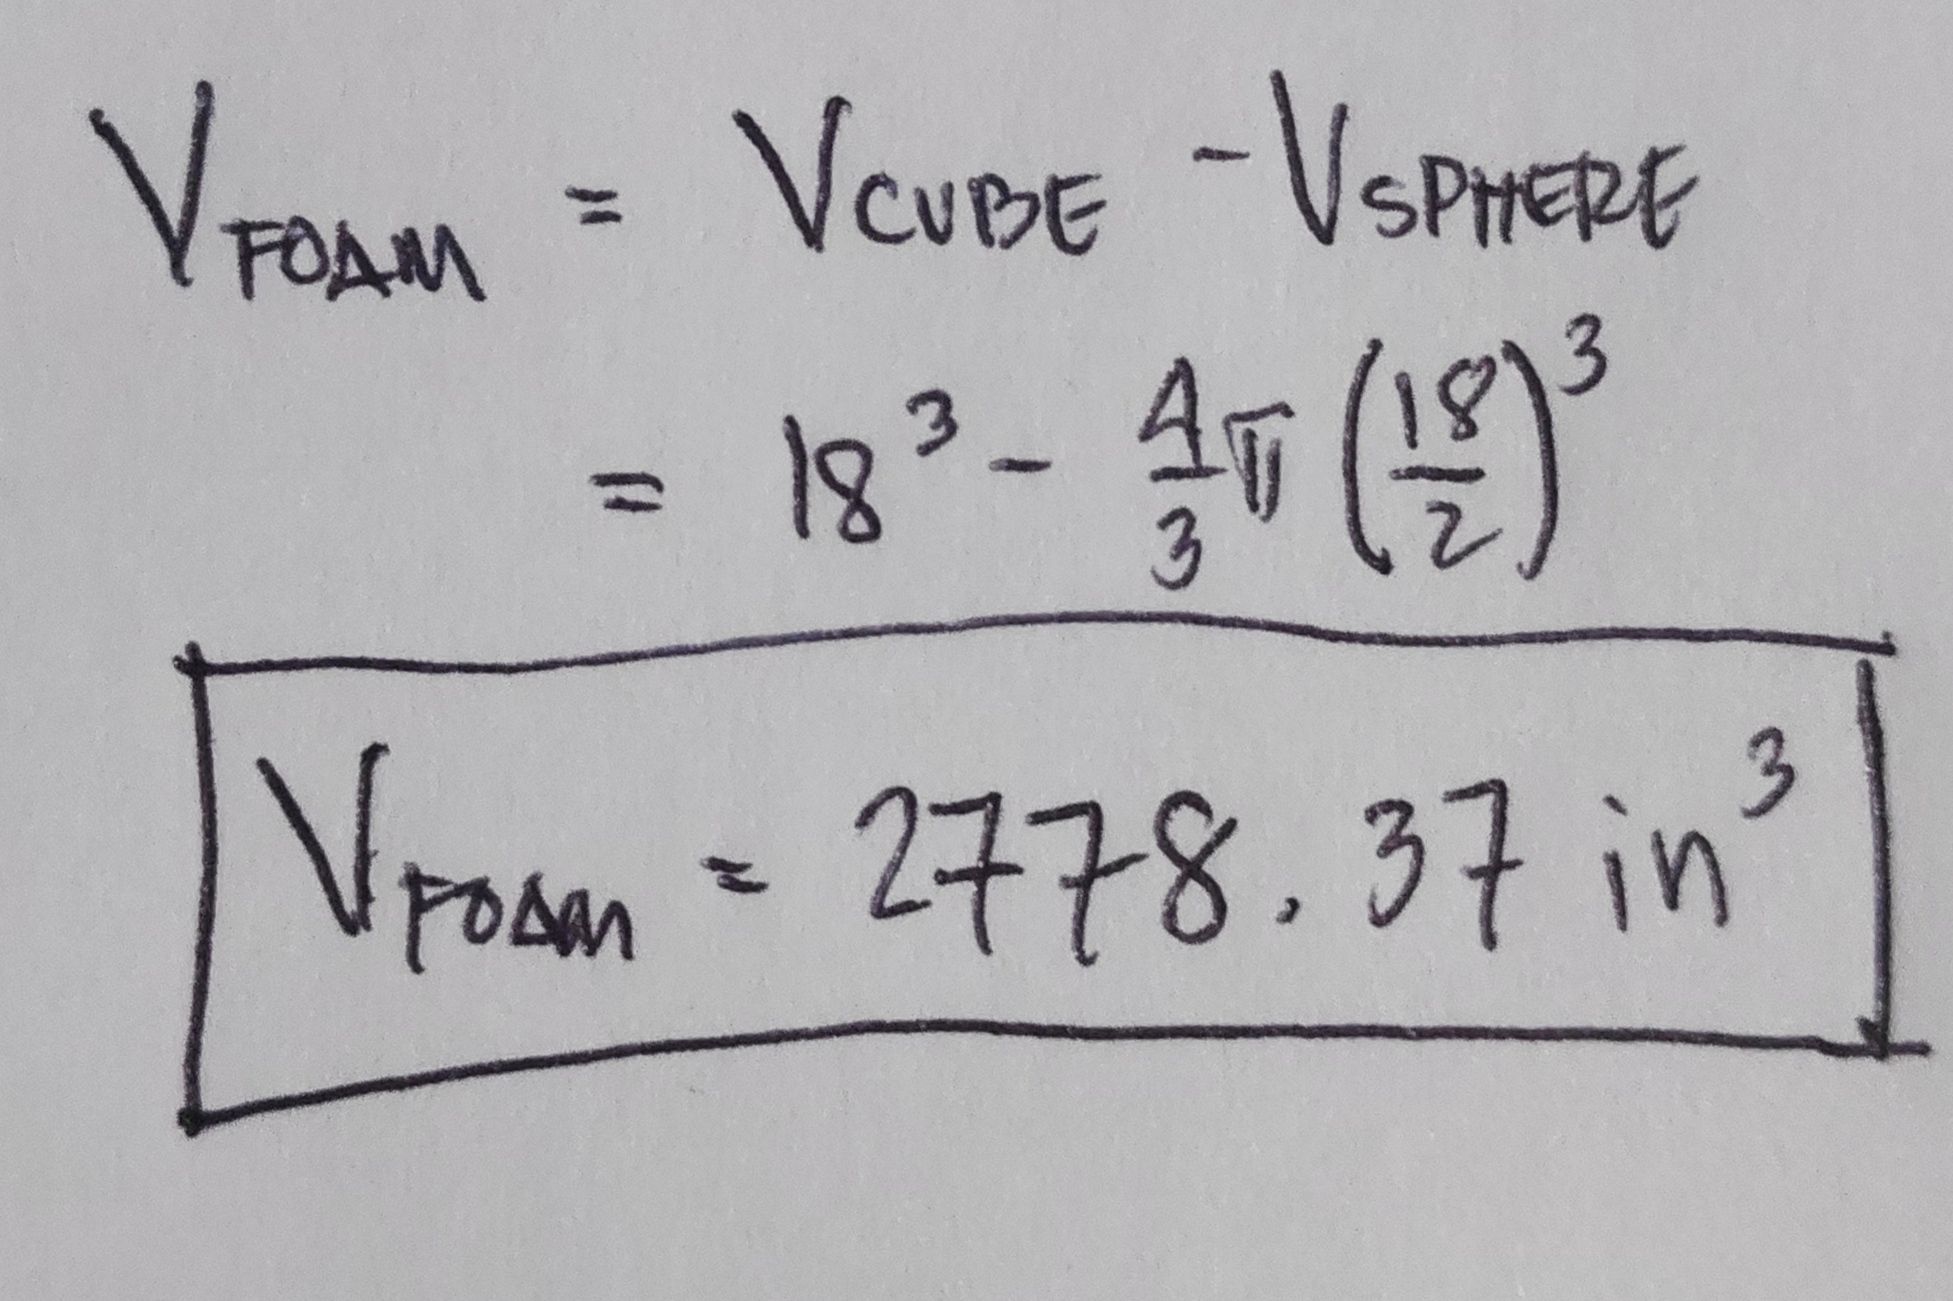 V FOAM = V CUBE - V SPHERE
= 18³ - 4/3 π (18/2)³
V FOAM = 2778.37 in³